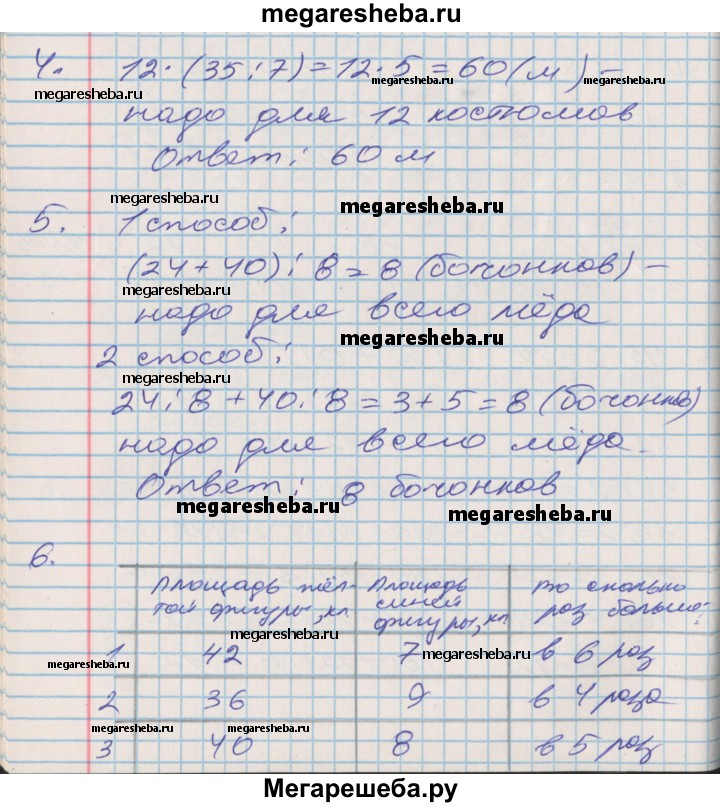 megaresheba.ru
4. 12 · (35 : 7) = 12 · 5 = 60 (м) –
megaresheba.ru megaresheba.ru megaresheba.ru
надо для 12 костюмов
Ответ: 60 м
megaresheba.ru megaresheba.ru
5. 1 способ:
(24 + 40) : 8 = 8 (бочонков) –
megaresheba.ru
надо для всего мёда
megaresheba.ru
2 способ:
megaresheba.ru
24 : 8 + 40 : 8 = 3 + 5 = 8 (бочонков)
надо для всего мёда.
Ответ: 8 бочонков
megaresheba.ru megaresheba.ru
6.
Площадь жёл- Площадь Во сколько
той фигуры, кл синей раз больше?
фигуры, кл
megaresheba.ru
1 42 7 в 6 раз
megaresheba.ru megaresheba.ru
2 36 9 в 4 раза
megaresheba.ru megaresheba.ru
3 40 8 в 5 раз
Мегарешеба.ру